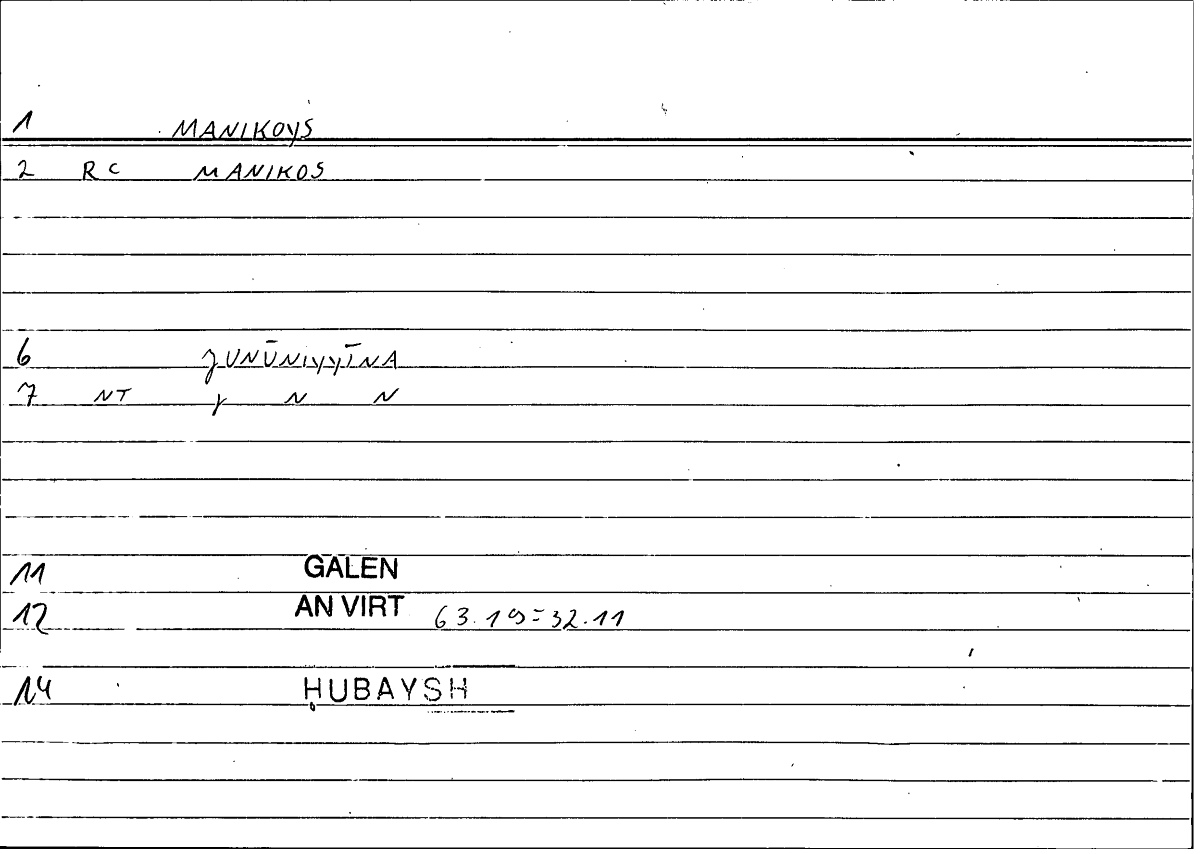 1 MANIKOYS
2 RC MANIKOS
6 ȷUNŪNIYYĪNA
7 NT ȷ N N
11 GALEN
12 AN VIRT 63.19=32.11
14 ḤUBAYSH